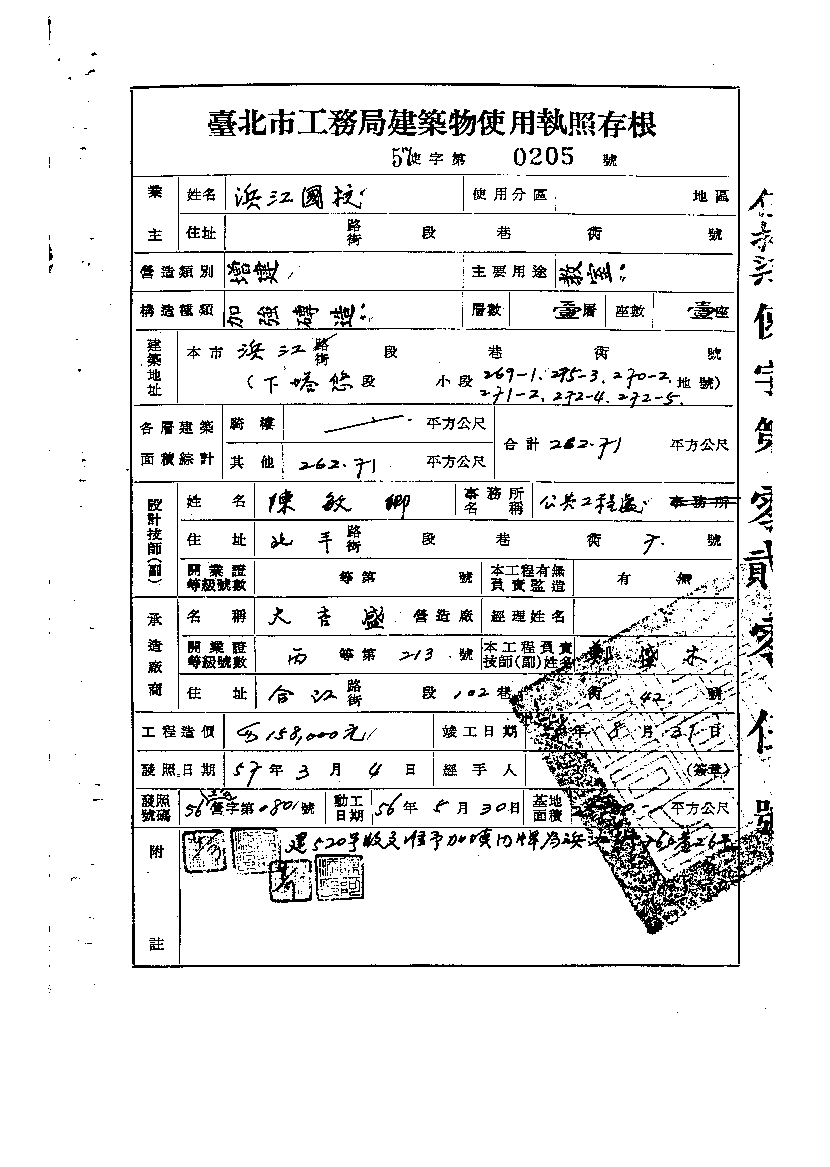 臺北市工務局建築物使用執照存根
57使字第 0205 號
業主 姓名 浜江國校 使用分區 地區
住址 路街 段 巷 衖 號
營造類別 增建 主要用途 教室
構造種類 加強磚造 層數 壹層 座數 壹座
建築地址 本市 浜江 路街 段 巷 衖 號
(下塔悠段 小段 269-1、295-3、270-2、地號)
271-2、272-4、272-5
各層建築面積綜計 騎樓 平方公尺 合計 262.71 平方公尺
其他 262.71 平方公尺
設計技師(副) 姓名 陳敏卿 事務所名稱 公共工程處 事務所
住址 北平 路街 段 巷 衖 7 號
開業證等級號數 等第 號 本工程有無負責監造 有 無
承造廠商 名稱 大吉盛 營造廠 經理姓名
開業證等級號數 丙 等第 213 號 本工程負責技師(副)姓名 鄭
住址 合江 路街 段 102 巷 衖 42 號
工程造價 158,000元 竣工日期 56年 8月 31日
發照日期 57年 3月 4日 經手人 (簽章)
發照號碼 56 營字第 0801 號 動工日期 56年 5月 30日 基地面積 平方公尺
附註 建520號
使字第零貳零伍號